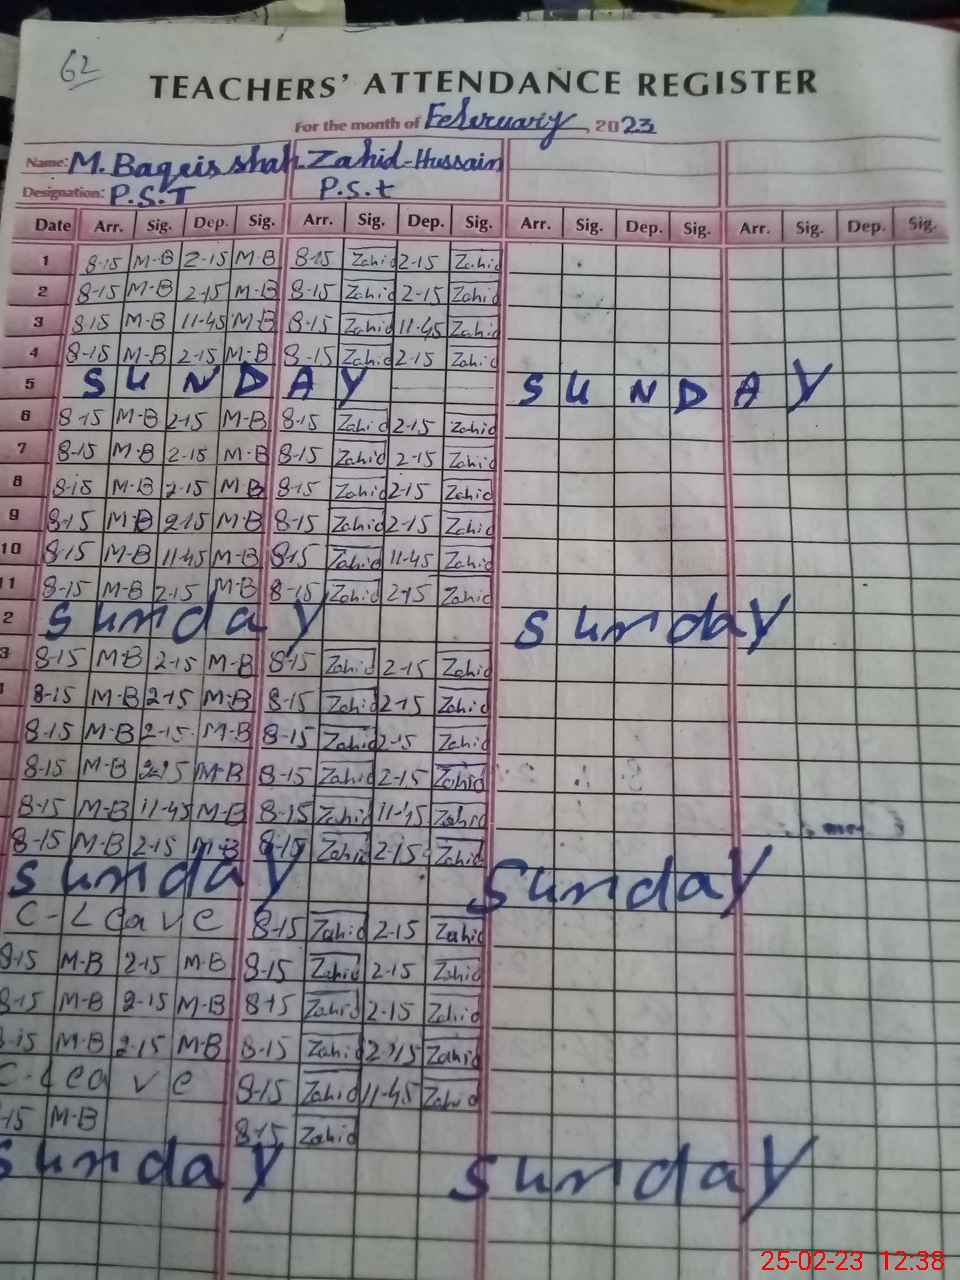 62
TEACHERS' ATTENDANCE REGISTER
For the month of February, 2023
Name: M. Baqeis shah Zahid-Hussain
Designation: P.S.T P.S.t
Date Arr. Sig. Dep. Sig. Arr. Sig. Dep. Sig. Arr. Sig. Dep. Sig. Arr. Sig. Dep. Sig.
1 8-15 M-B 2-15 M-B 8-15 Zahid 2-15 Zahid
2 8-15 M-B 2-15 M-B 8-15 Zahid 2-15 Zahid
3 8-15 M-B 11-45 M-B 8-15 Zahid 11-45 Zahid
4 8-15 M-B 2-15 M-B 8-15 Zahid 2-15 Zahid
5 SUNDAY SUNDAY
6 8-15 M-B 2-15 M-B 8-15 Zahid 2-15 Zahid
7 8-15 M-B 2-15 M-B 8-15 Zahid 2-15 Zahid
8 8-15 M-B 2-15 M-B 8-15 Zahid 2-15 Zahid
9 8-15 M-B 2-15 M-B 8-15 Zahid 2-15 Zahid
10 8-15 M-B 11-45 M-B 8-15 Zahid 11-45 Zahid
11 8-15 M-B 2-15 M-B 8-15 Zahid 2-15 Zahid
2 Sunday Sunday
3 8-15 M-B 2-15 M-B 8-15 Zahid 2-15 Zahid
8-15 M-B 2-15 M-B 8-15 Zahid 2-15 Zahid
8-15 M-B 2-15 M-B 8-15 Zahid 2-15 Zahid
8-15 M-B 2-15 M-B 8-15 Zahid 2-15 Zahid
8-15 M-B 11-45 M-B 8-15 Zahid 11-45 Zahid
8-15 M-B 2-15 M-B 8-15 Zahid 2-15 Zahid
Sunday Sunday
C-Leave 8-15 Zahid 2-15 Zahid
8-15 M-B 2-15 M-B 8-15 Zahid 2-15 Zahid
8-15 M-B 2-15 M-B 8-15 Zahid 2-15 Zahid
8-15 M-B 2-15 M-B 8-15 Zahid 2-15 Zahid
C-Leave 8-15 Zahid 11-45 Zahid
-15 M-B 8-15 Zahid
Sunday Sunday
25-02-23 12:38